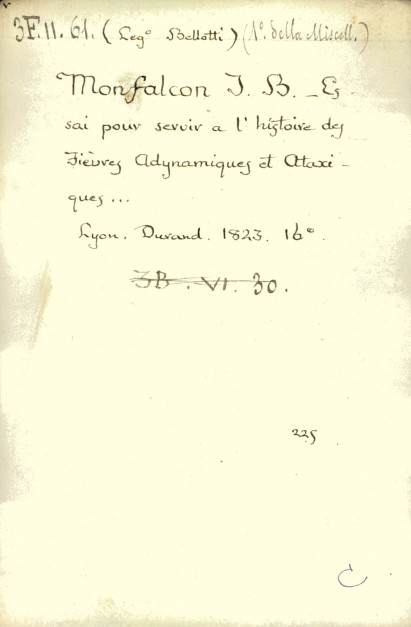 3F.11.61. (Leg° Bellotti) (1°. della Miscell.)
Monfalcon J. B. _ Es-
sai pour servir a l'histoire des
Fièvres Adynamiques et Ataxi-
ques...
Lyon. Durand. 1823. 16°.
3B. VI. 30.
225
C